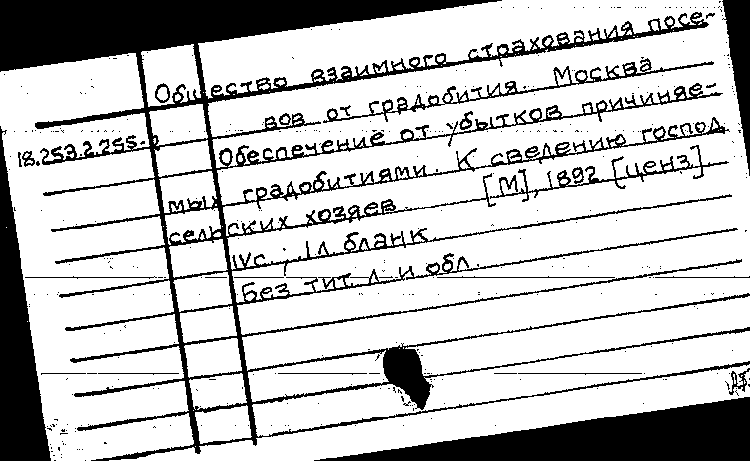 Общество взаимного страхования посе-
вов от градобития. Москва.
18.253.2.255-2
Обеспечение от убытков причиняе-
мых градобитиями. К сведению господ
сельских хозяев. [М], 1892 [ценз]
IVс.; 1л бланк.
Без тит. л и обл.